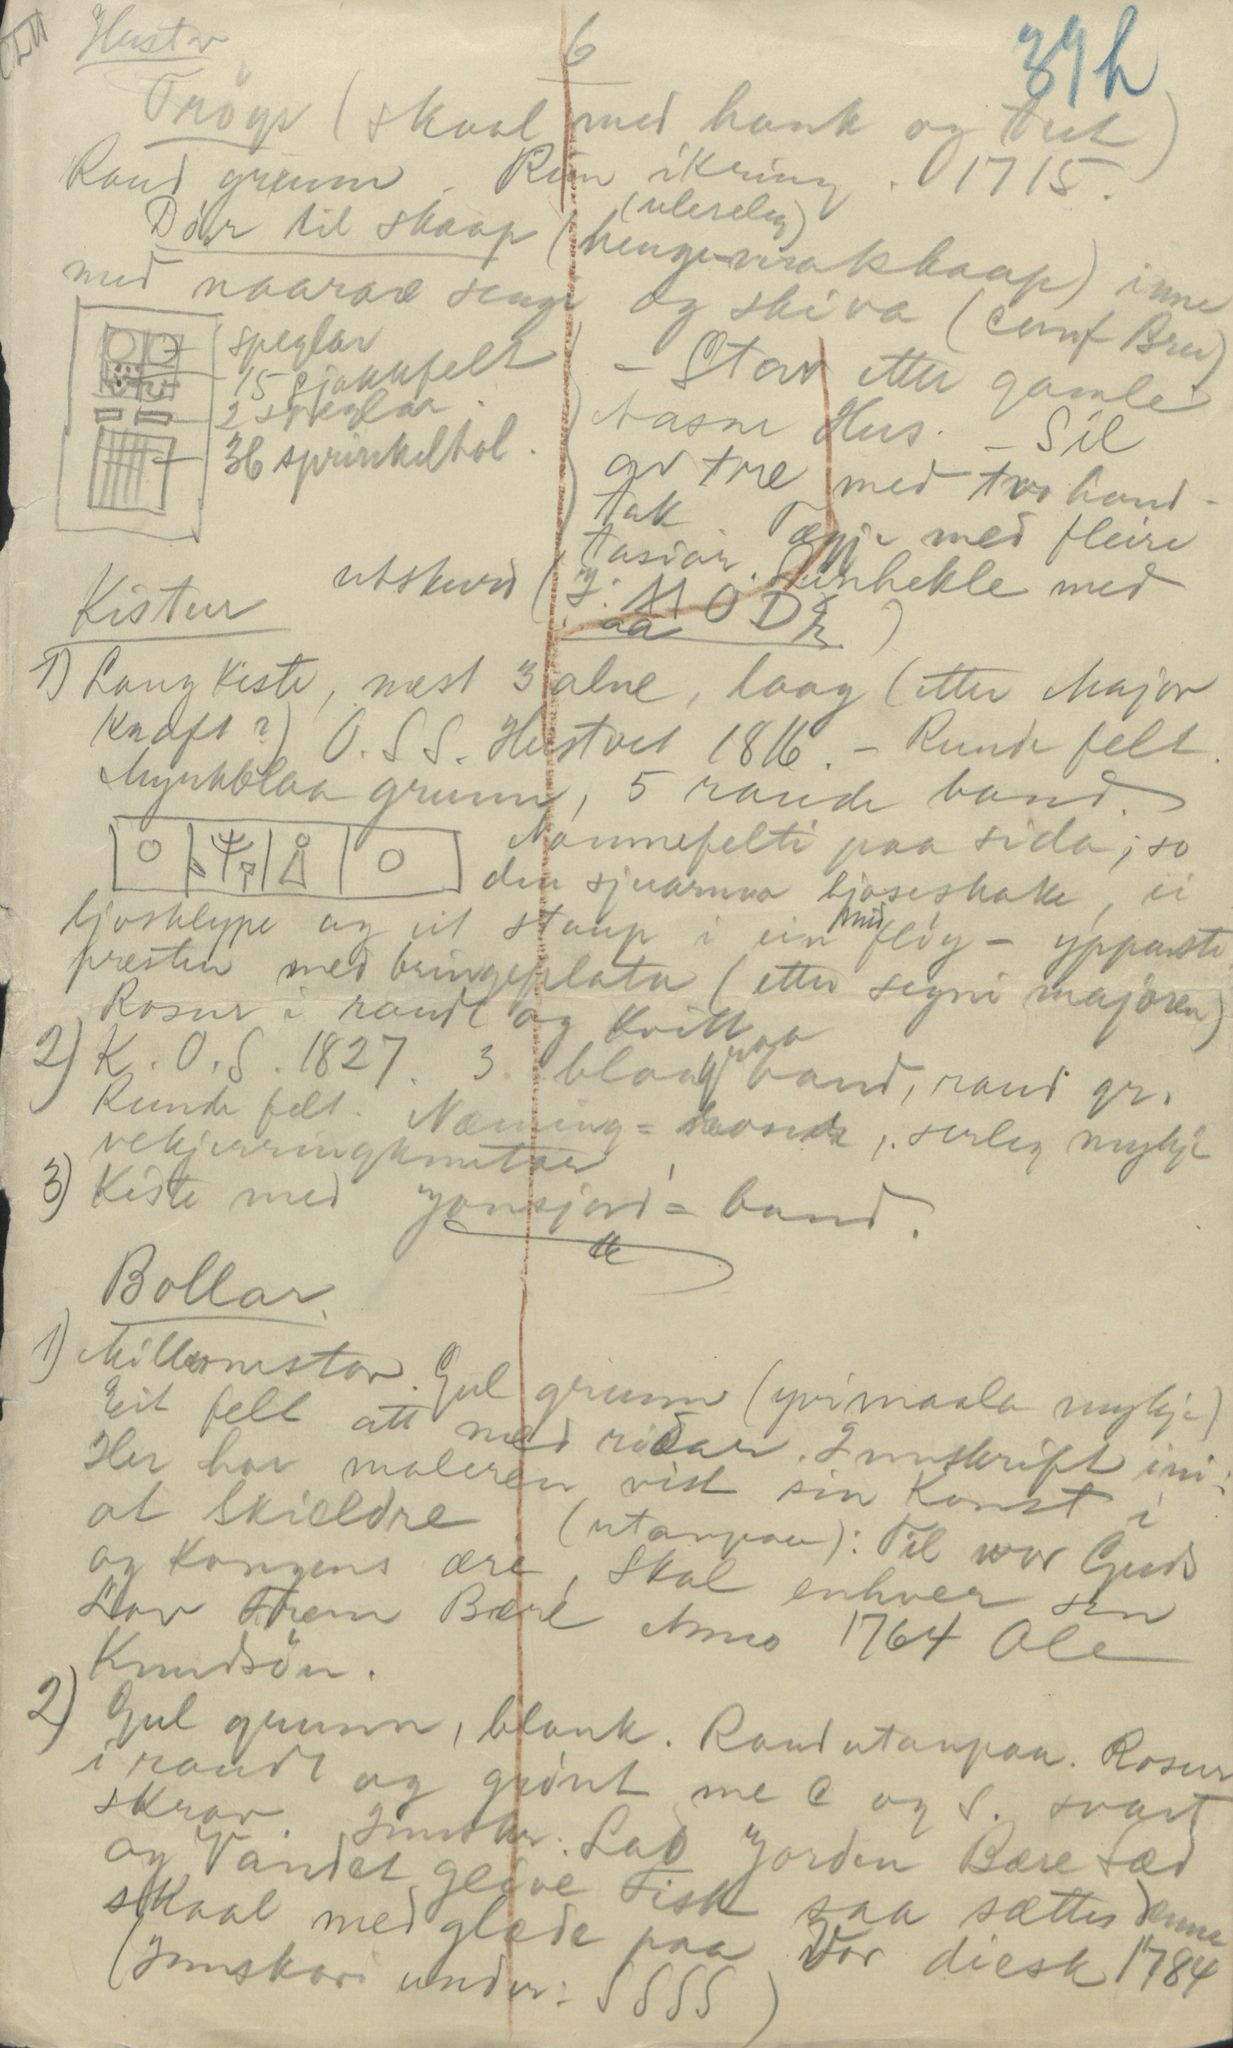 6
39h
Trøys (skaal med hank og tut)
Raud grunn. Rim ikring. 1715.
Dør til skaap (henge-mrakskaap) inne
med naarae sengi og skiva (conf Bru)
speglar
15 sjakkfelt
2 speglar.
36 sprinkelhol.
- Stav etter gamle
Aasne Hus. - Sil
av tre med tvo hand-
tak. Tægje med fleire
tasiar. Linhekle med
utskurd (J. M O D E R)
Kistur
1) Lang kiste, mest 3 alne, laag (etter Major
Knoft?) O.S.S. Hustvet 1816. - Runde felt.
Myrkblaa grunn, 5 raude band.
Nonnefelti paa sida; so
den sjuarma ljosestake, ei
ljosklype og eit staup i ein midfløy - ypparste
presten med bringeplata (etter segni majoren)
Rosur i raudt og kvitt
2) K.O.S. 1827. 3 blaagraa band, raud gr.
Runde felt. Næming = rosur, serleg mykje
vekjerringknutar
3) Kiste med Jonsjord = band.
Bollar
1) Gul grunn (yvimaala mykje)
Eit felt att med ridar. Innskrift ini:
Her har maleren vist sin Konst i
at Skieldre (utanpaa): Til wor Guds
og Kongens ære, Skal enhver sin
Lov Frem Bære Anno 1764 Ole
Knudsøn.
2) Gul grunn, blank. Raud utanpaa. Rosur
i raudt og grønt me C og S. svart
skrav. Innskr. Lad Jorden Bære Sæd
og Vandet geive Fisk saa sættes denne
skaal med glæde paa Vor diesk 1784
(Innskori under: SSSS)